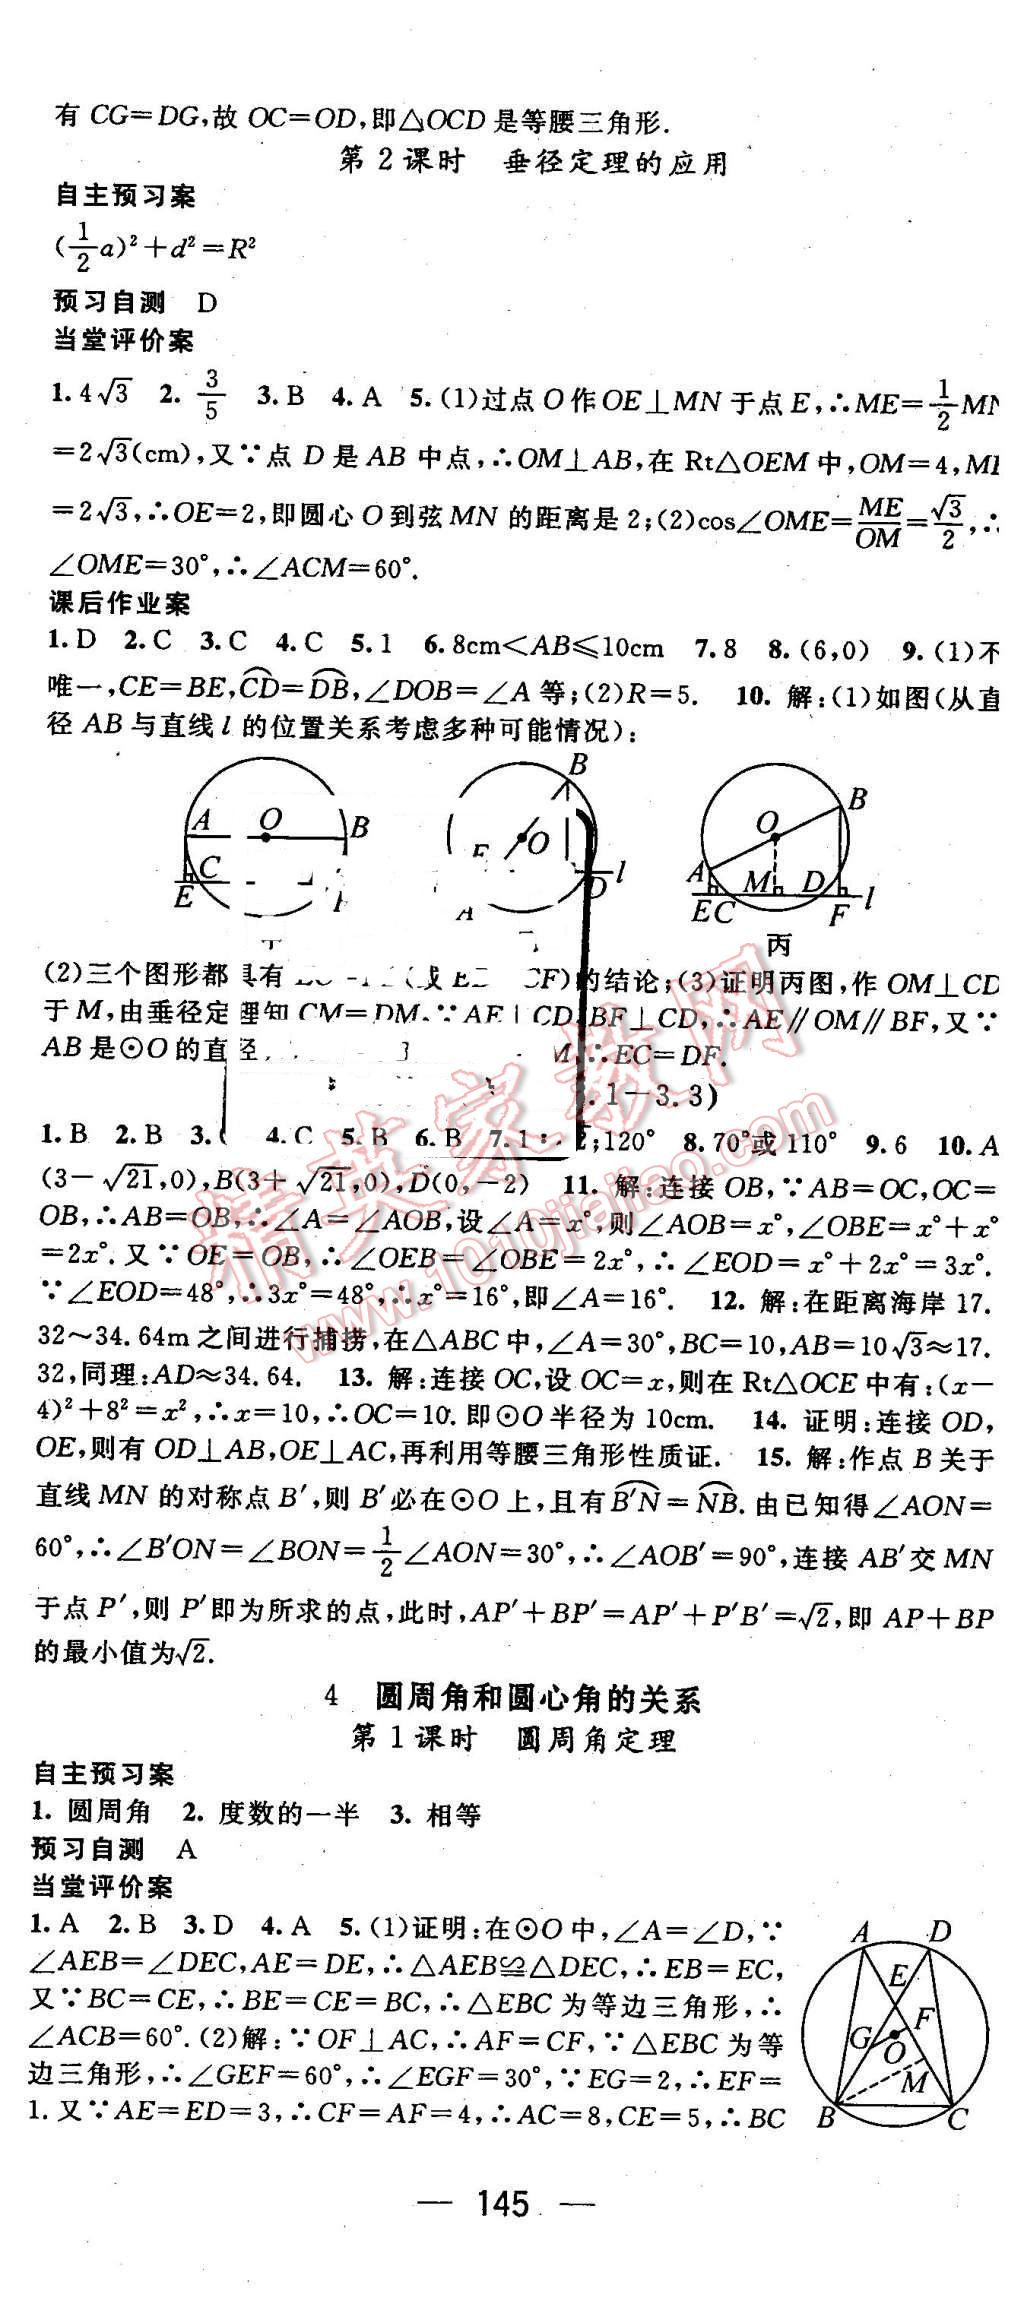 有 CG=DG,故 OC=OD,即△OCD 是等腰三角形.
第 2 课时 垂径定理的应用
自主预习案
(1/2 a)²+d²=R²
预习自测 D
当堂评价案
1. 4√3 2. 3/5 3. B 4. A 5. (1)过点 O 作 OE⊥MN 于点 E,∴ME=1/2 MN
=2√3(cm),又∵点 D 是 AB 中点,∴OM⊥AB,在 Rt△OEM 中,OM=4,ME
=2√3,∴OE=2,即圆心 O 到弦 MN 的距离是 2;(2)cos∠OME=ME/OM=√3/2,∴
∠OME=30°,∴∠ACM=60°.
课后作业案
1. D 2. C 3. C 4. C 5. 1 6. 8cm<AB≤10cm 7. 8 8. (6,0) 9. (1)不
唯一,CE=BE,C͡D=D͡B,∠DOB=∠A 等;(2)R=5. 10. 解:(1)如图(从直
径 AB 与直线 l 的位置关系考虑多种可能情况):
A O B C E
B O E A D l
O B A M D l E C F
丙
(2)三个图形都具有 (或 CF)的结论;(3)证明丙图,作 OM⊥CD
于 M,由垂径定理知 CM=DM,∵AE⊥CD,BF⊥CD,∴AE∥OM∥BF,又∵
AB 是⊙O 的直径, ∴EC=DF.
.1—3.3)
1. B 2. B 3. 4. C 5. B 6. B 7. 1∶2;120° 8. 70°或 110° 9. 6 10. A
(3-√21,0),B(3+√21,0),D(0,-2) 11. 解:连接 OB,∵AB=OC,OC=
OB,∴AB=OB,∴∠A=∠AOB,设∠A=x°,则∠AOB=x°,∠OBE=x°+x°
=2x°. 又∵OE=OB,∴∠OEB=∠OBE=2x°,∴∠EOD=x°+2x°=3x°.
∵∠EOD=48°,∴3x°=48°,∴x°=16°,即∠A=16°. 12. 解:在距离海岸 17.
32~34.64m 之间进行捕捞,在△ABC 中,∠A=30°,BC=10,AB=10√3≈17.
32,同理:AD≈34.64. 13. 解:连接 OC,设 OC=x,则在 Rt△OCE 中有:(x-
4)²+8²=x²,∴x=10,∴OC=10. 即⊙O 半径为 10cm. 14. 证明:连接 OD,
OE,则有 OD⊥AB,OE⊥AC,再利用等腰三角形性质证. 15. 解:作点 B 关于
直线 MN 的对称点 B′,则 B′必在⊙O 上,且有B͡′N=N͡B. 由已知得∠AON=
60°,∴∠B′ON=∠BON=1/2∠AON=30°,∴∠AOB′=90°,连接 AB′交 MN
于点 P′,则 P′即为所求的点,此时,AP′+BP′=AP′+P′B′=√2,即 AP+BP
的最小值为√2.
4 圆周角和圆心角的关系
第 1 课时 圆周角定理
自主预习案
1. 圆周角 2. 度数的一半 3. 相等
预习自测 A
当堂评价案
1. A 2. B 3. D 4. A 5. (1)证明:在⊙O 中,∠A=∠D,∵
∠AEB=∠DEC,AE=DE,∴△AEB≌△DEC,∴EB=EC,
又∵BC=CE,∴BE=CE=BC,∴△EBC 为等边三角形,∴
∠ACB=60°. (2)解:∵OF⊥AC,∴AF=CF,∵△EBC 为等
边三角形,∴∠GEF=60°,∴∠EGF=30°,∵EG=2,∴EF=
1. 又∵AE=ED=3,∴CF=AF=4,∴AC=8,CE=5,∴BC
A D E F G O M B C
— 145 —
精英家教网
www.1010jiajiao.com